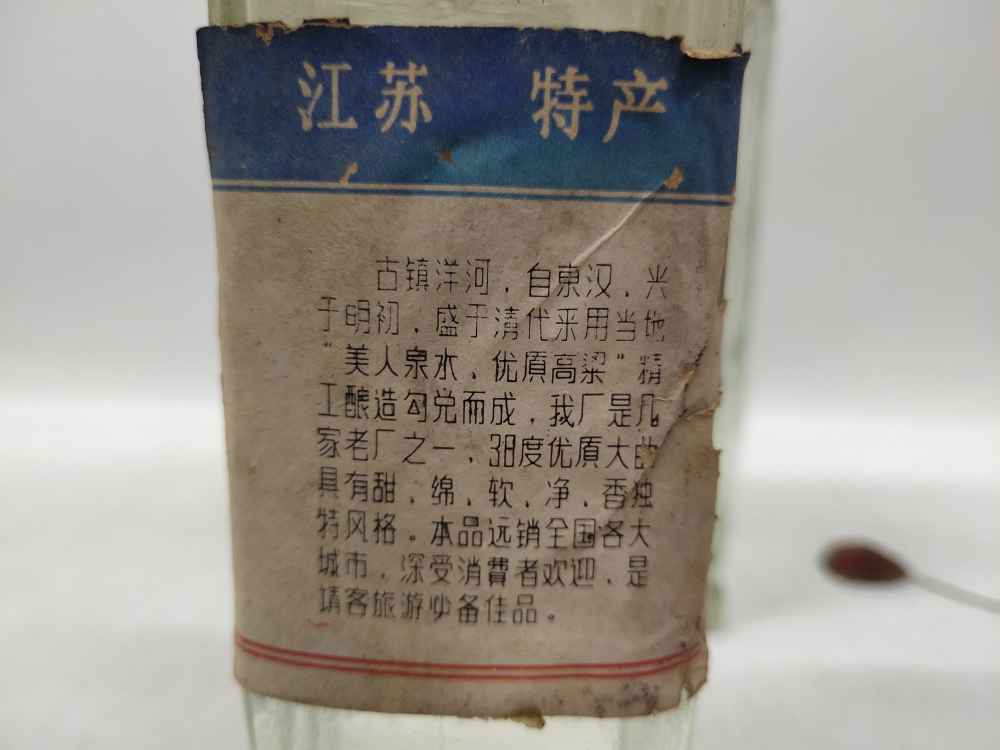 江苏 特产
古镇洋河，自東汉，兴
于明初，盛于清代来用当地
"美人泉水、优質高梁"精
工酿造勾兑而成，我厂是几
家老厂之一，38度优質大曲
具有甜，绵，软，净，香独
特风格。本品远销全国各大
城市，深受消費者欢迎，是
請客旅游必备佳品。